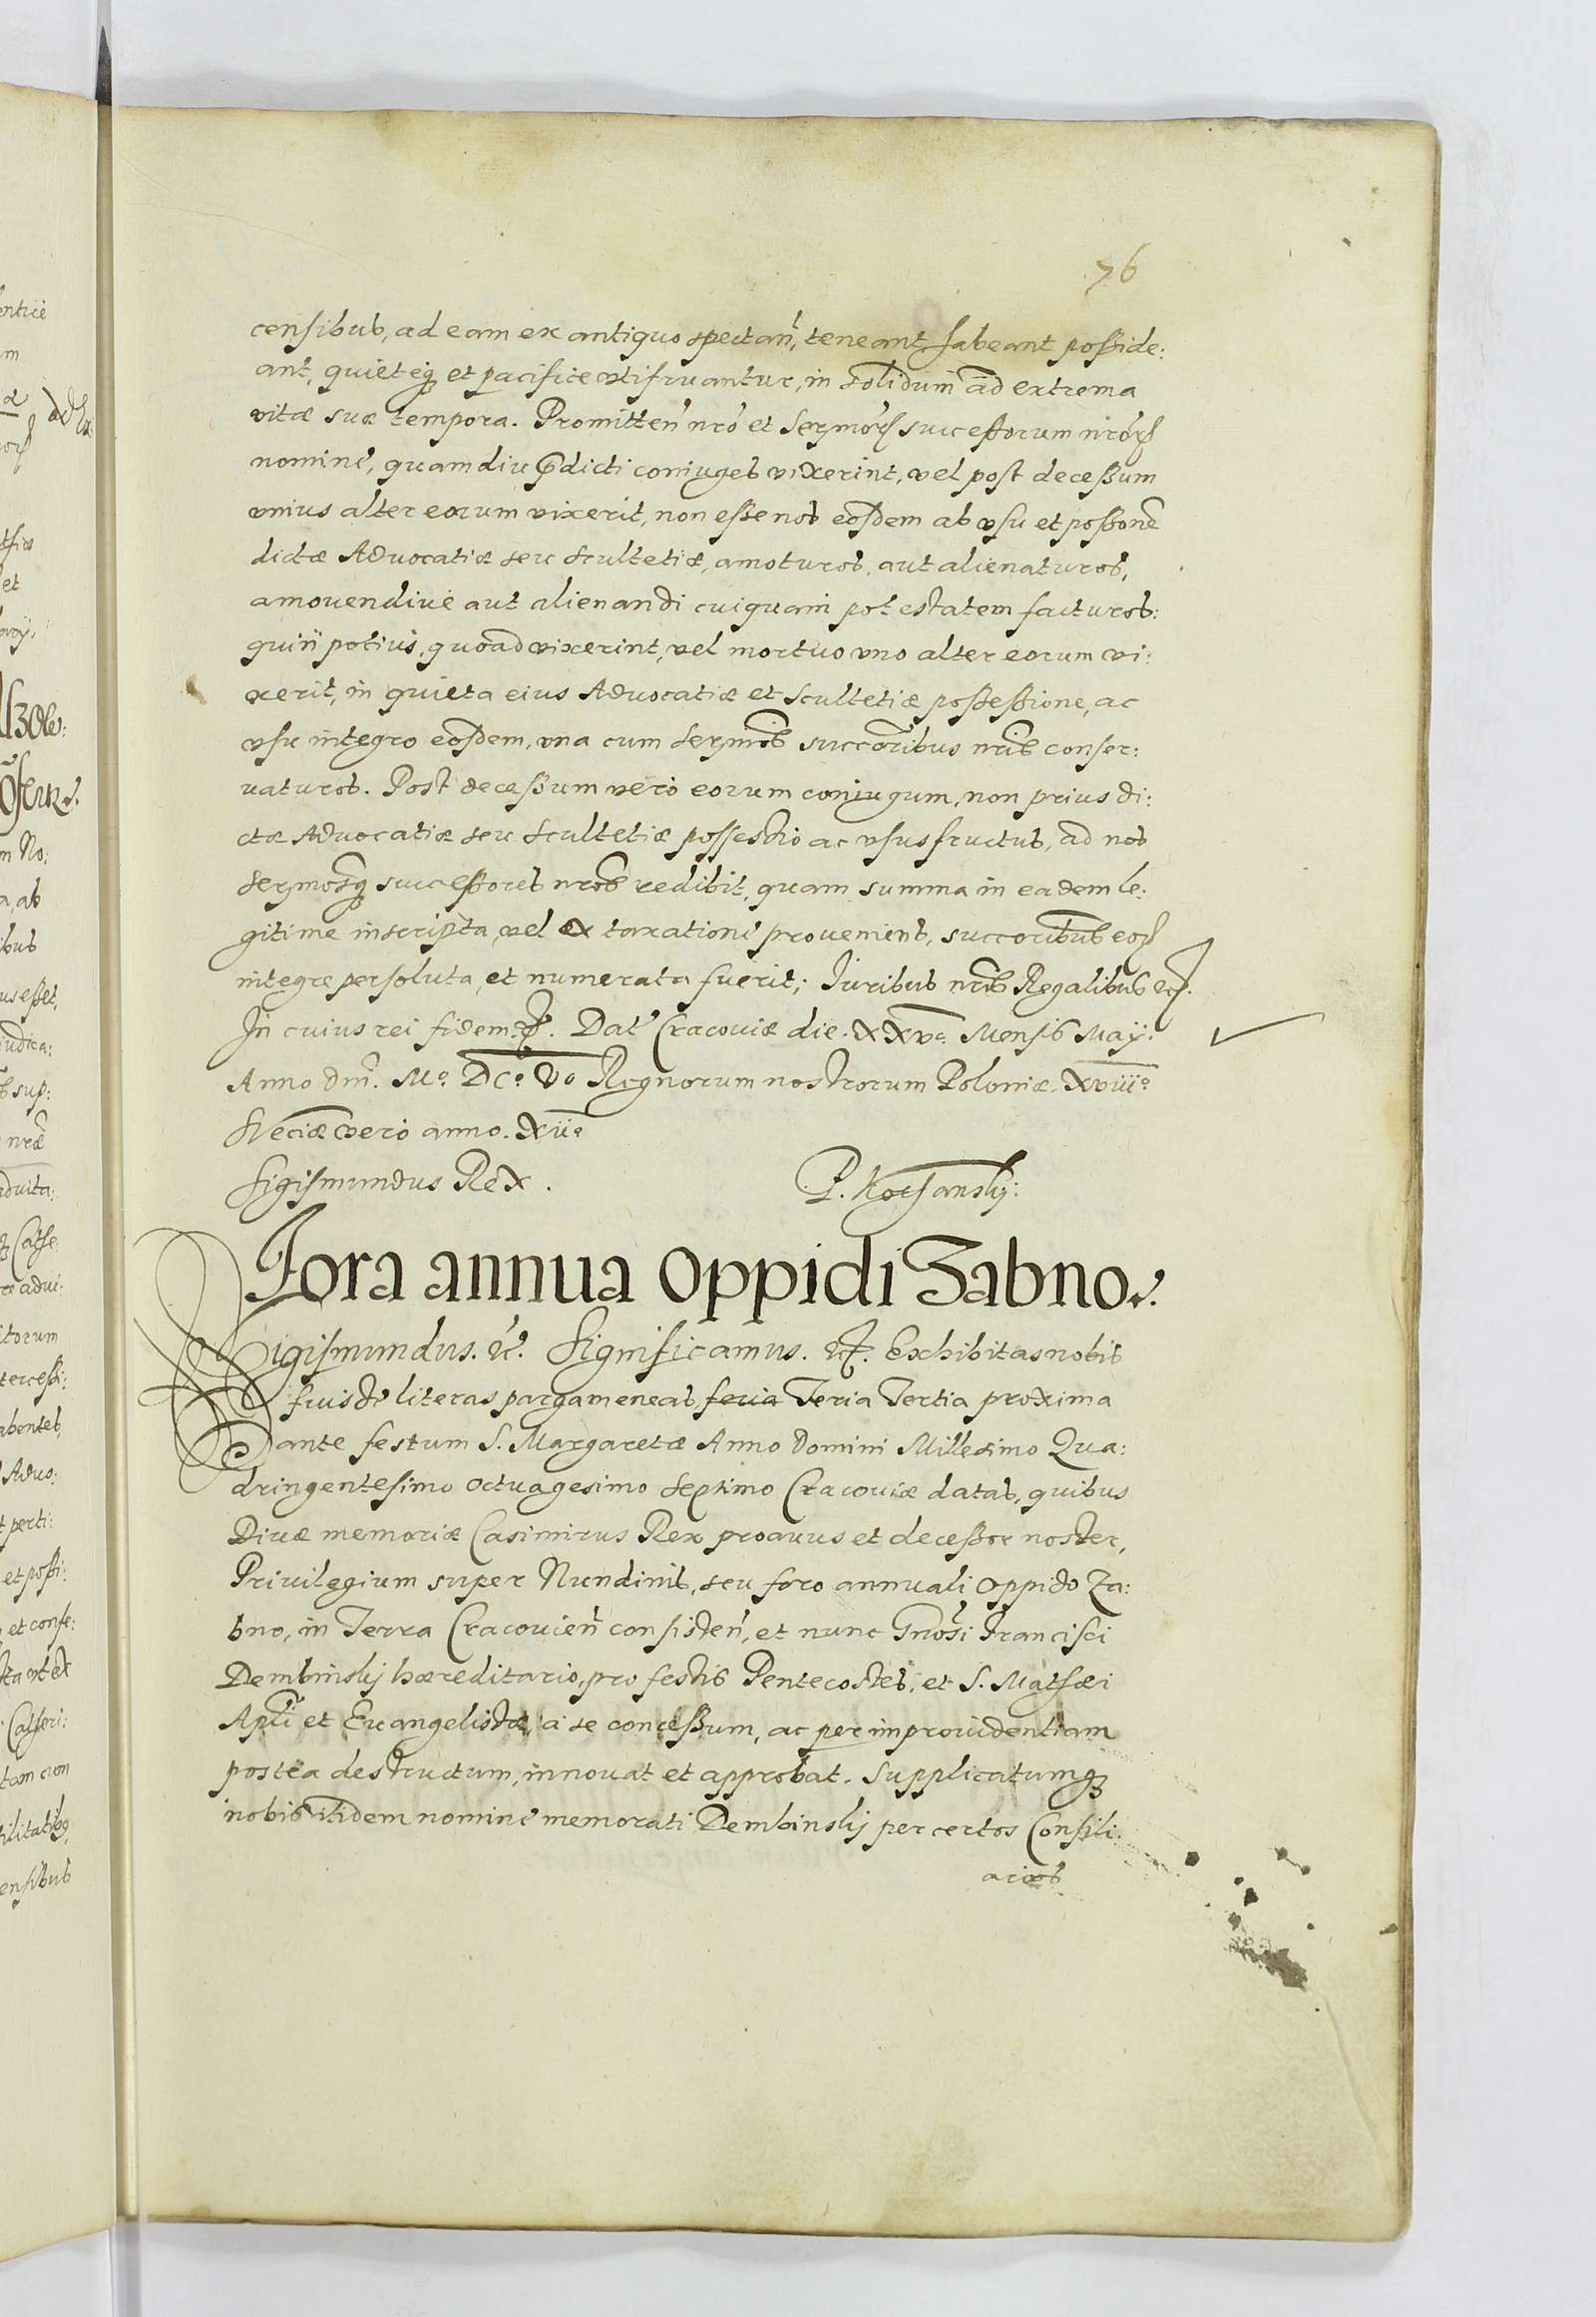 76
censibus, ad eam ex antiquo spectan̄, teneant habeant posside:
ant, quieteq₃ et pacifice utifruantur, in solidum ad extrema
vitæ suæ tempora. Promitten̄ nrō et Sermōr̄ successorum nrōr̄
nomine, quamdiu p̄dicti coniuges vixerint, vel post decessum
unius alter eorum vixerit, non esse nos eosdem ab usu et possōne
dictæ Advocatiæ seu Scultetiæ, amoturos, aut alienaturos,
amovendive aut alienandi cuiquam potestatem facturos:
quin potius, quoad vixerint, vel mortuo uno alter eorum vi:
xerit, in quieta eius Advocatiæ et Scultetiæ possessione, ac
usu integro eosdem, una cum Sermīs succōribus nrīs conser:
vaturos. Post decessum vero eorum coniugum, non prius di:
ctæ Advocatiæ seu Scultetiæ possessio ac ususfructus, ad nos
Sermosq₃ successores nrōs redibit, quam summa in eadem le:
gitime inscripta, vel ex taxatione proveniens, succoribus eor̄
integre persoluta, et numerata fuerit; Iuribus nrīs Regalibus etc.
In cuius rei fidem etc. Dat̄ Cracoviæ die. XXVᵃ. Mensis Maÿ.
Anno Dnī. Mº. DCº. Vº Regnorum nostrorum Poloniæ. XVIIIº
Sveciæ vero anno. XIIº
Sigismundus Rex. P. Kochanskÿ:
Fora annua oppidi Zabno.
Sigismundus. etc. Significamus. etc. Exhibitas nobis
fuisse literas pargameneas, feria Feria Tertia proxima
ante festum S. Margaretæ Anno Domini Millesimo Qua:
dringentesimo octuagesimo septimo Cracoviæ datas, quibus
Divæ memoriæ Casimirus Rex proavus et decessor noster,
Privilegium super Nundinis, seu foro annuali oppido Za:
bno, in Terra Cracovien̄ consisten̄, et nunc Gnōsi Francisci
Dembinskÿ hæreditario, pro festis Pentecostes, et S. Mathæi
Aplī et Evangelistæ, a se concessum, ac per improvidentiam
postea destructum, innovat et approbat. Supplicatumq₃
nobis itidem nomine memorati Dembinskÿ per certos Consili:
arios